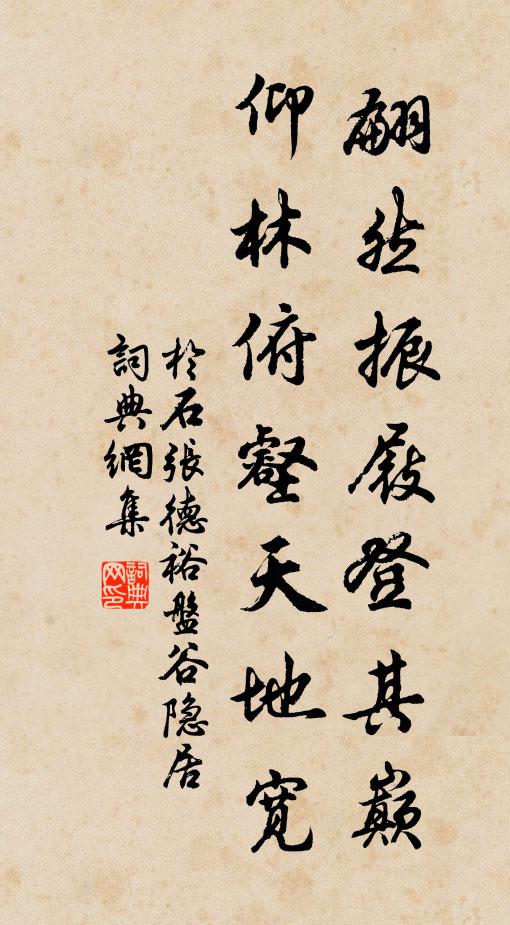 翩然振屐登其巅
仰林俯壑天地宽
於石張德裕盤谷隐居
詞典網集
詞典网印